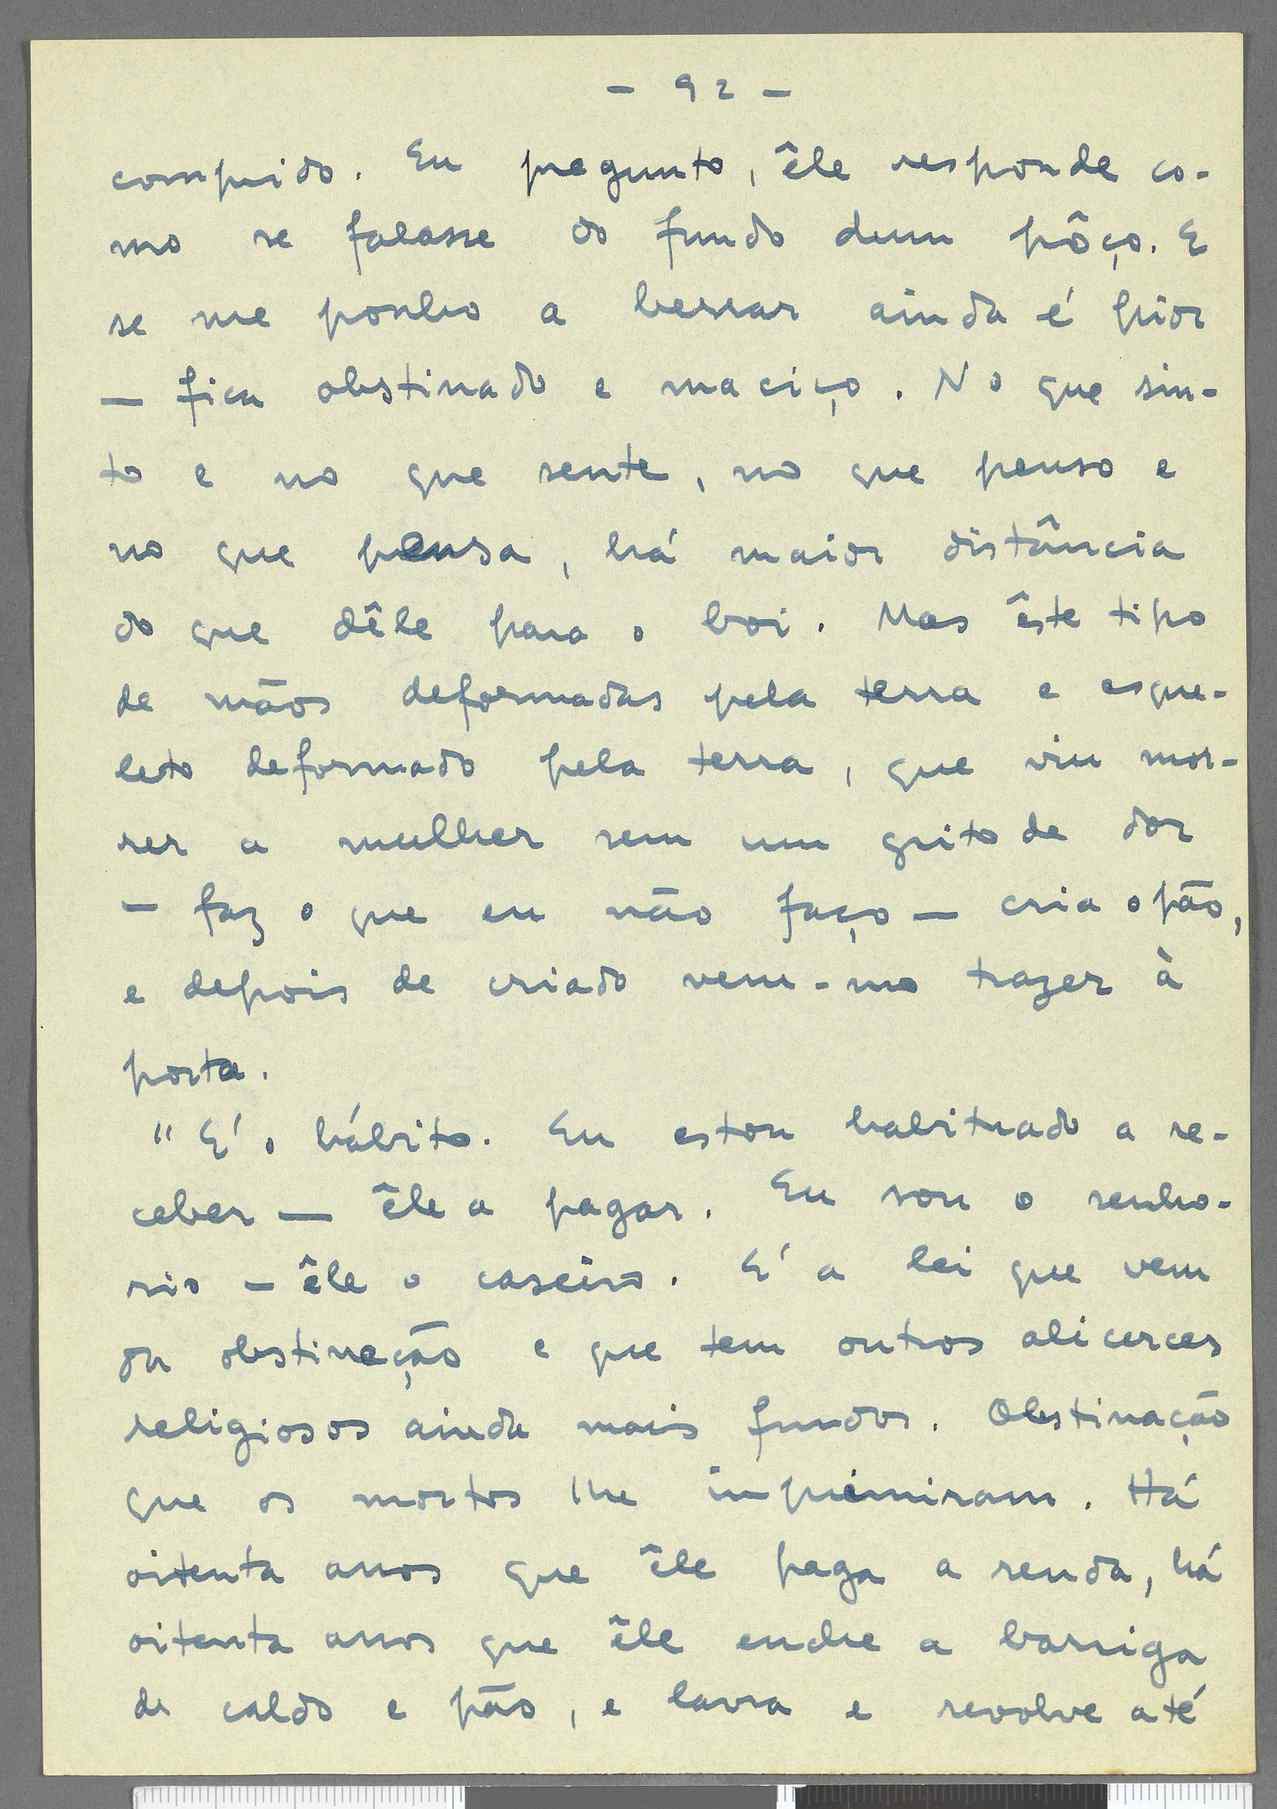 - 92 -
comprido. Eu pregunto, êle responde co-
mo se falasse do fundo dum pôço. E
se me ponho a berrar ainda é pior
— fica obstinado e maciço. No que sin-
to e no que sente, no que penso e
no que pensa, há maior distância
do que dêle para o boi. Mas êste tipo
de mãos deformadas pela terra e esque-
leto deformado pela terra, que viu mor-
rer a mulher sem um grito de dor
— faz o que eu não faço — cria o pão,
e depois de criado vem-mo trazer à
porta.
"E' o hábito. Eu estou habituado a re-
ceber — êle a pagar. Eu sou o senho-
rio — êle o caseiro. E' a lei que vem
da obstinação e que tem outros alicerces
religiosos ainda mais fundos. Obstinação
que os mortos lhe imprimiram. Há
oitenta anos que êle paga a renda, há
oitenta anos que êle enche a barriga
de caldo e pão, e lavra e revolve até